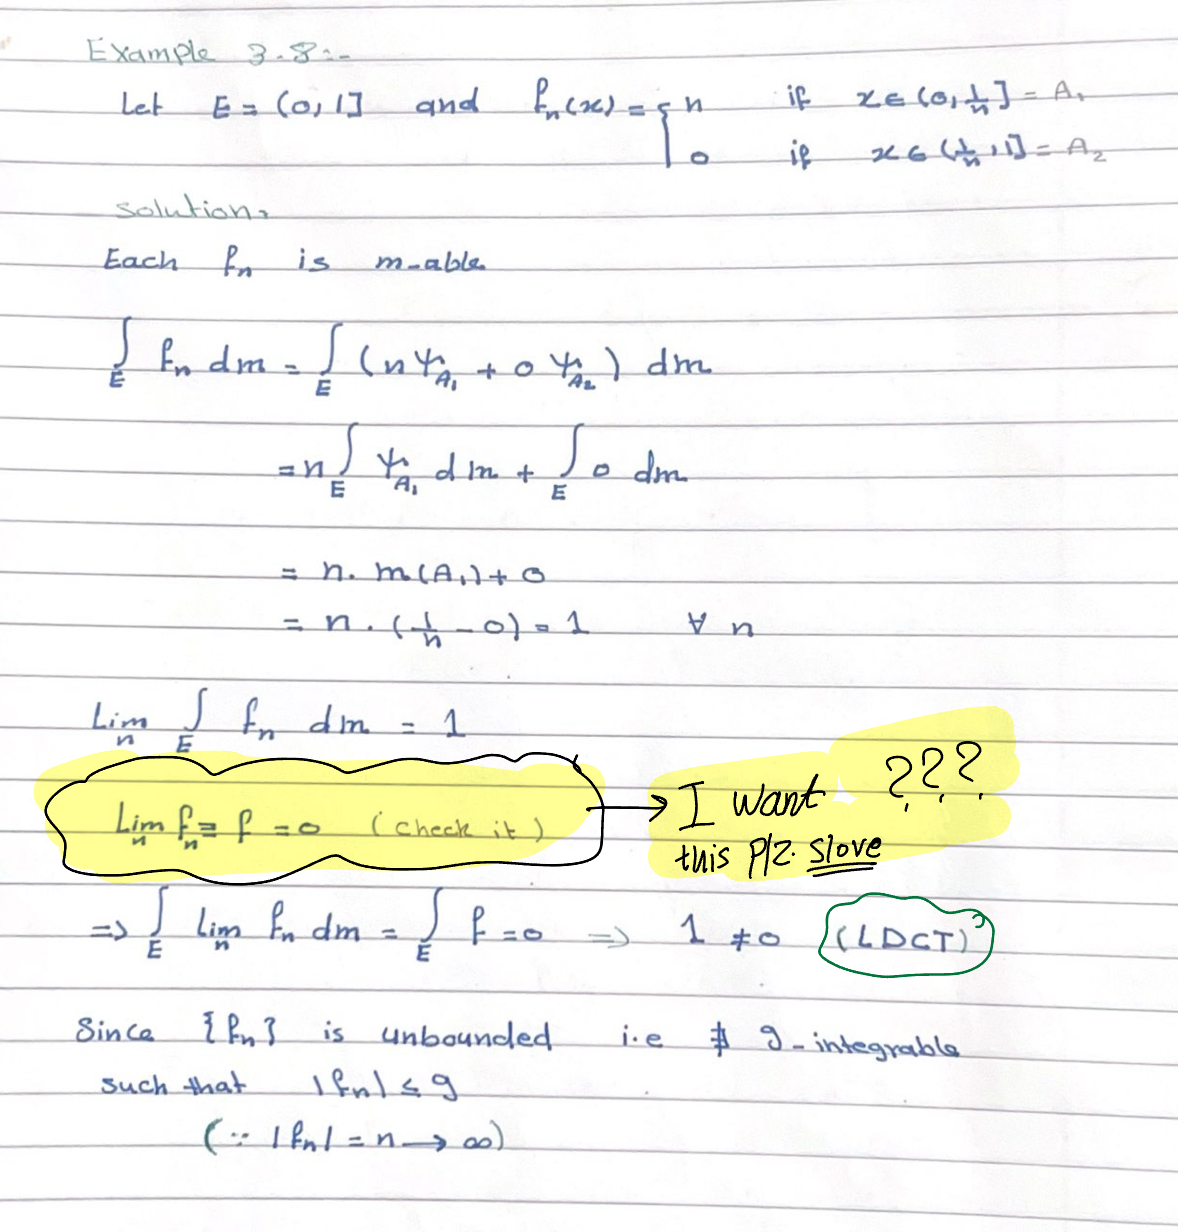 Example 3.8:-
Let E = (0,1] and fn(x) = { n if x∈(0,1/n] = A1
0 if x∈(1/n,1] = A2
Solution,
Each fn is m-able
∫E fn dm = ∫E (nψA1 + 0 ψA2) dm
= n∫E ψA1 dm + ∫E 0 dm
= n. m(A1) + 0
= n. (1/n - 0) = 1 ∀ n
Lim n ∫E fn dm = 1
Lim n fn = f = 0 (check it)
I want ???
this plz. slove
=> ∫E Lim n fn dm = ∫E f = 0 => 1 ≠ 0 (LDCT)
Since {fn} is unbounded i.e ∄ g-integrable
such that |fn| ≤ g
(∵ |fn| = n → ∞)